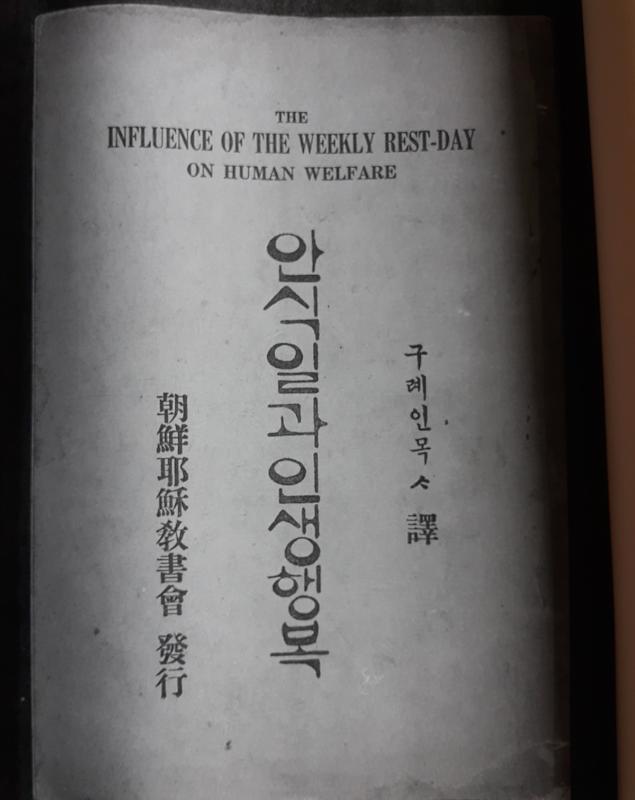 THE
INFLUENCE OF THE WEEKLY REST-DAY
ON HUMAN WELFARE
구례인목ᄉᆞ 譯
안식일과인생행복
朝鮮耶穌敎書會 發行